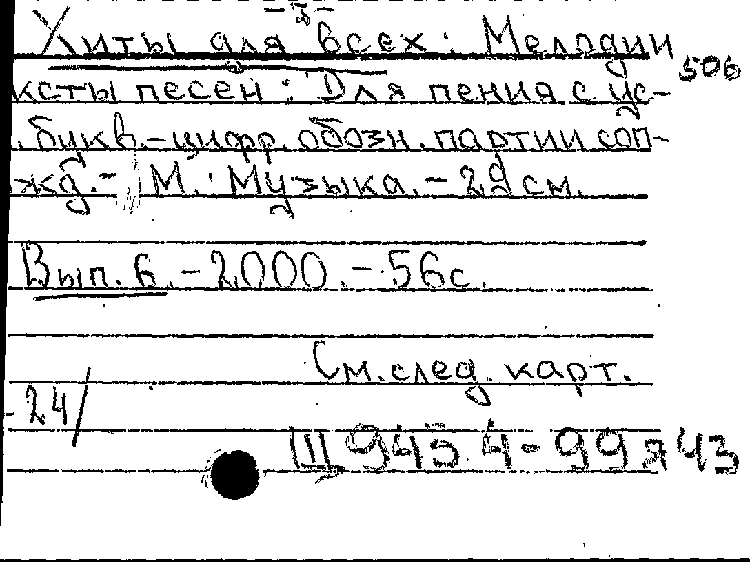 Хиты для всех: Мелодии
506
ксты песен: Для пения с ус-
. букв.-цифр. обозн. партии соп-
жд. - М.: Музыка. - 29 см.
Вып. 6. - 2000. - 56 с.
См. след. карт.
-24/
Щ 945.4-99 я 43